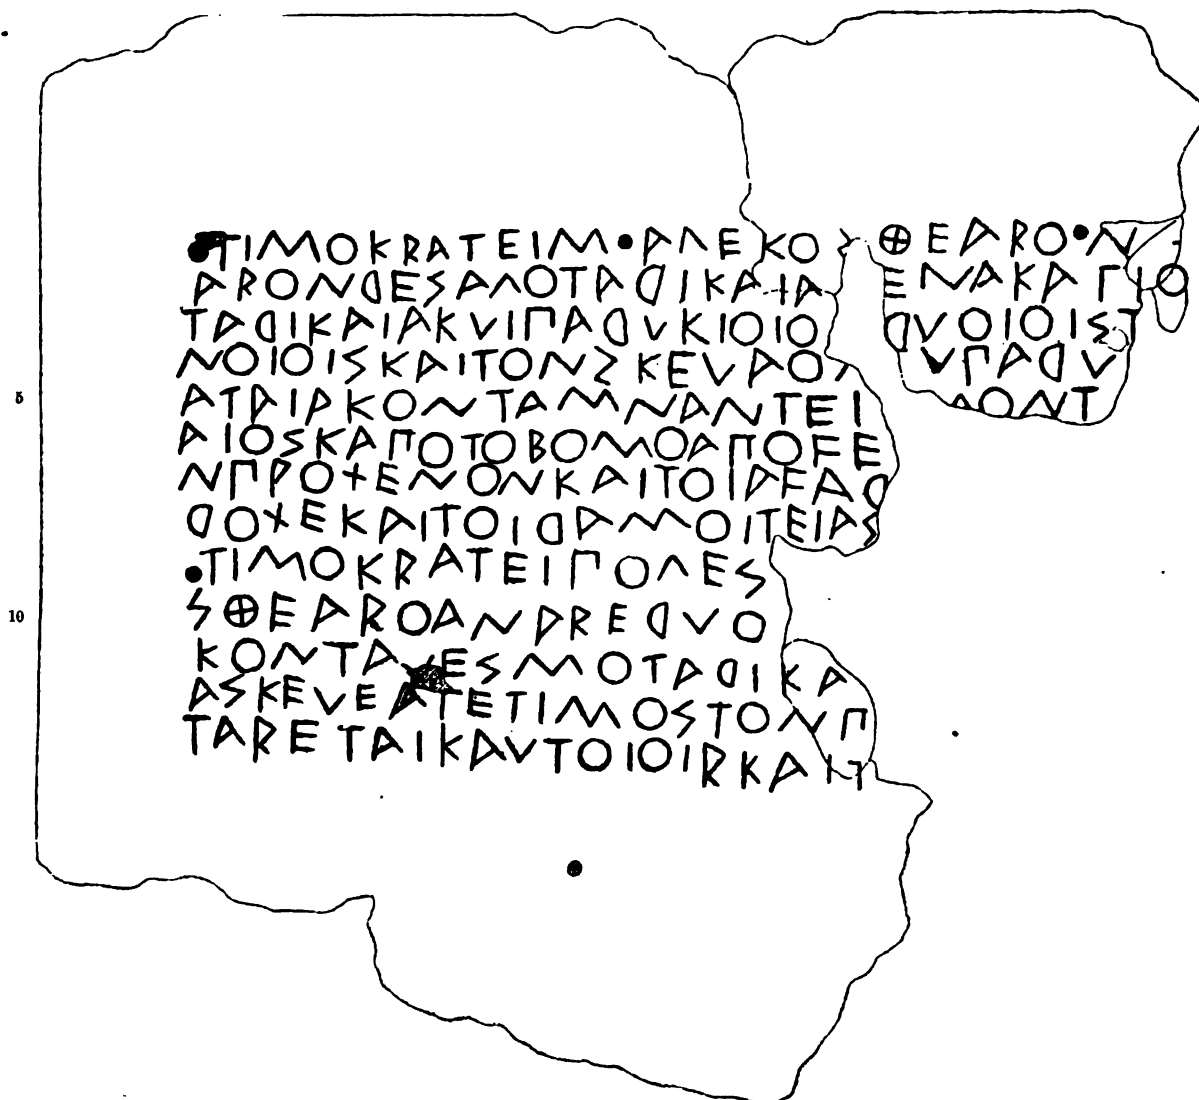 •ΤΙΜΟΚΡΑΤΕΙΜ•ΑΛΕΚΟΣ ΘΕΑΡΟ•Ν
ΑΡΟΝΔΕΣΑΛΟΤΑΔΙΚΑΙΑ ΕΝΑΚΑΠΙΟ
ΤΑΔΙΚΑΙΑΚΥΙΠΑΔΥΚΙΟΙΟ ΔΥΟΙΟΙΣΤ
ΝΟΙΟΙΣΚΑΙΤΟΝΣΚΕΥΑΟ ΥΠΑΔΥ
ΑΤΑΙΑΚΟΝΤΑΜΝΑΝΤΕΙ ΛΟΝΤ
ΑΙΟΣΚΑΠΟΤΟΒΟΜΟΑΠΟϜΕ
ΝΠΡΟΞΕΝΟΝΚΑΙΤΟΙΑϜΑΔ
ΔΟΞΕΚΑΙΤΟΙΔΑΜΟΙΤΕΙΑΣ
•ΤΙΜΟΚΡΑΤΕΙΠΟΛΕΣ
ΣΘΕΑΡΟΑΝΔΡΕΔΥΟ
ΚΟΝΤΑ ΕΣΜΟΤΑΔΙΚΑ
ΑΣΚΕΥΕΑΤΕΤΙΜΟΣΤΟΝΠ
ΤΑΡΕΤΑΙΚΑΥΤΟΙΟΙΡΚΑΙΤ
5
10